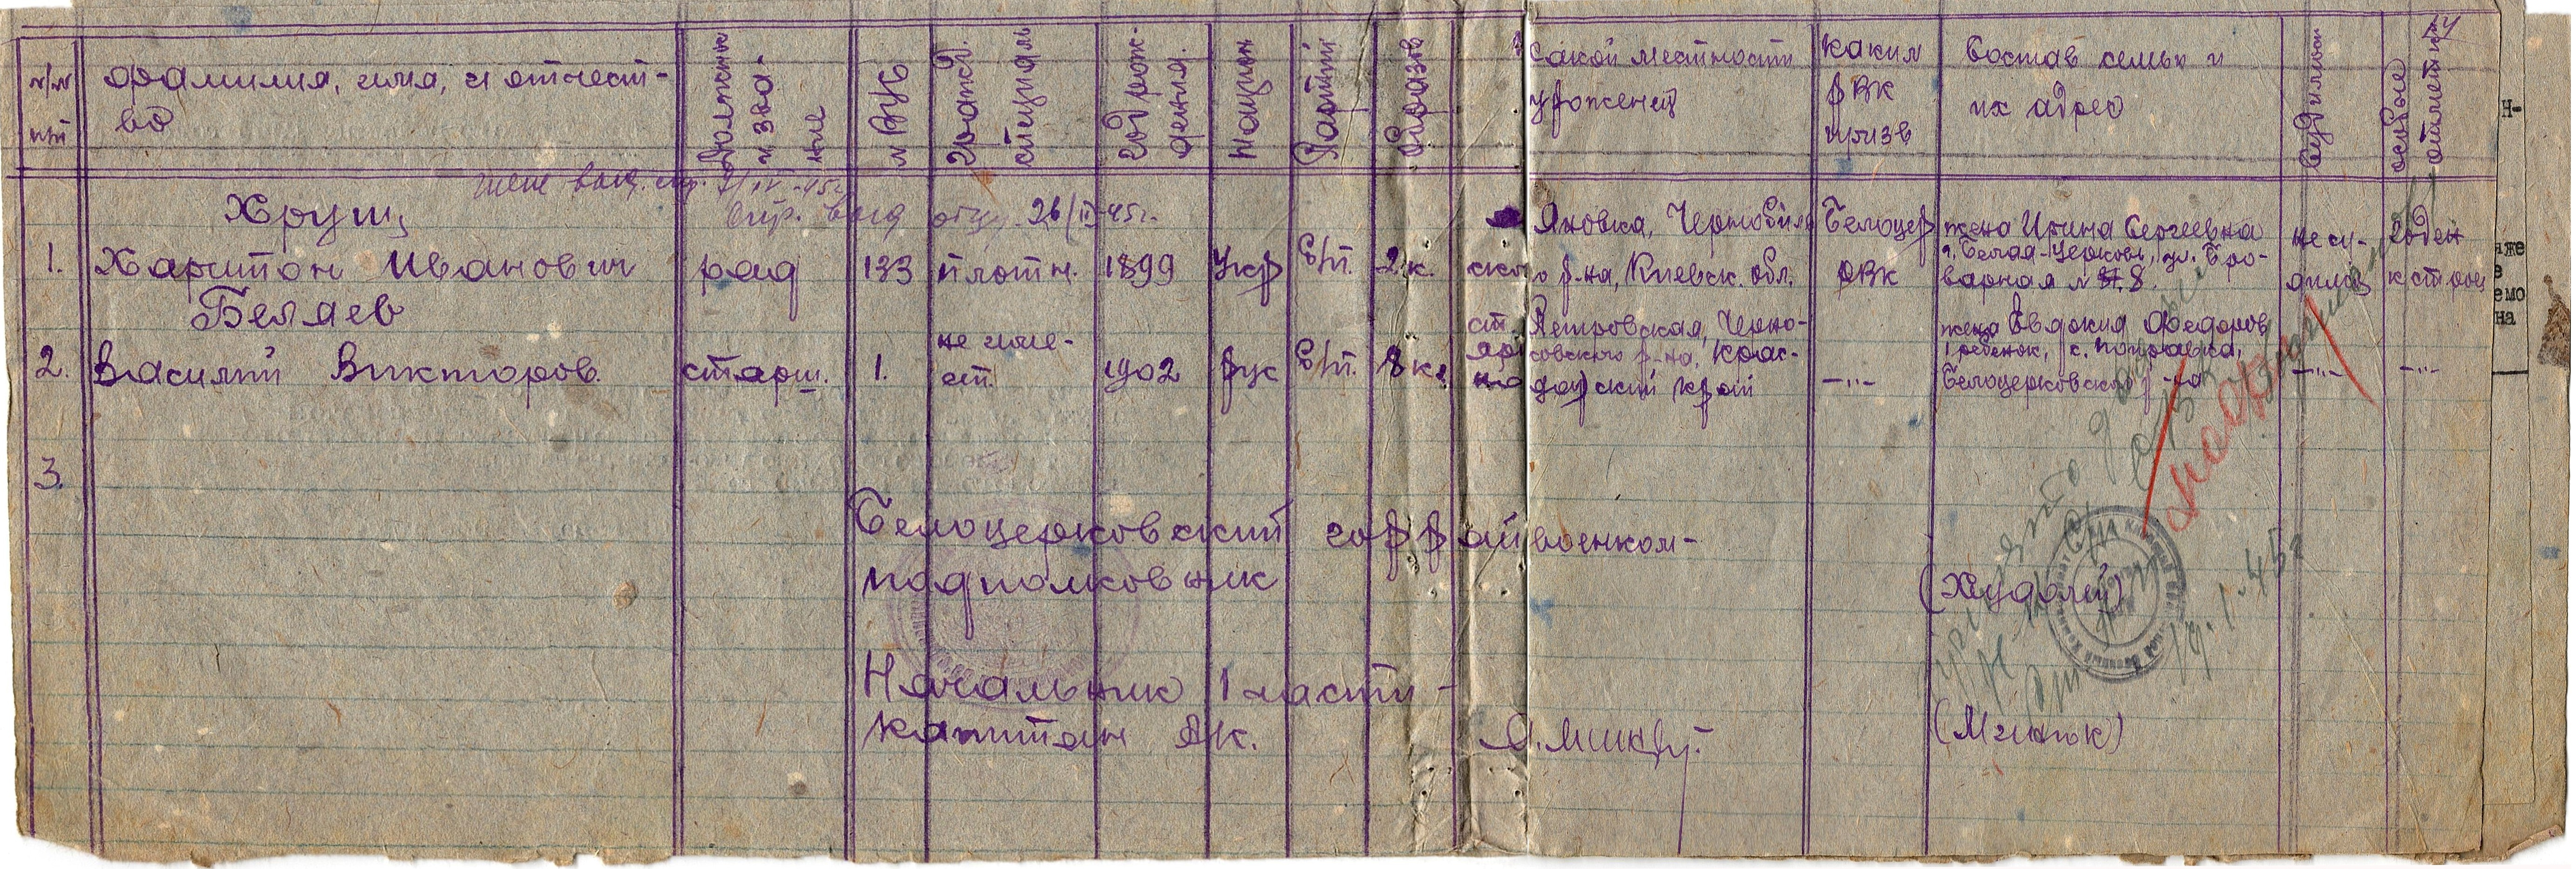 14
н/н п/п
фамилия, имя, и отчест-
во
Должность и звание
№ ВУС
Гражд. специаль
Год рож-
дения.
Национ
Партий
Образов
какой местности
уроженец
каким
РВК
призв
Состав семьи и
их адрес
Судимост
особые отметки
жене выд. спр.
Спр. выд 26/II-45г.
Хрущ
1. Харитон Иванович ряд 133 плотн. 1899 Укр б/п. 2 к.
Яновка, Чернобыль
ского р-на, Киевск. обл.
Белоцер
РВК
жена Ирина Сергеевна
г. Белая-Церковь, ул. Бро-
варная № 8.
не су-
дилс
годен
к строю
Беляев
2. Василий Викторов. старш. 1. не име-
ет. 1902 рус б/п. 8 к.
ст. Петровская, Черно-
ерковского р-на, Крас-
нодарский край
—„—
жена Евдокия Федоров
1 ребенок, с.
Белоцерковского р-на
—„—
—„—
3.
Белоцерковский горрайвоенком-
подполковник (Худолий)
Начальник 1 части-
капитан АК. (Мчинок)
19.1.45г